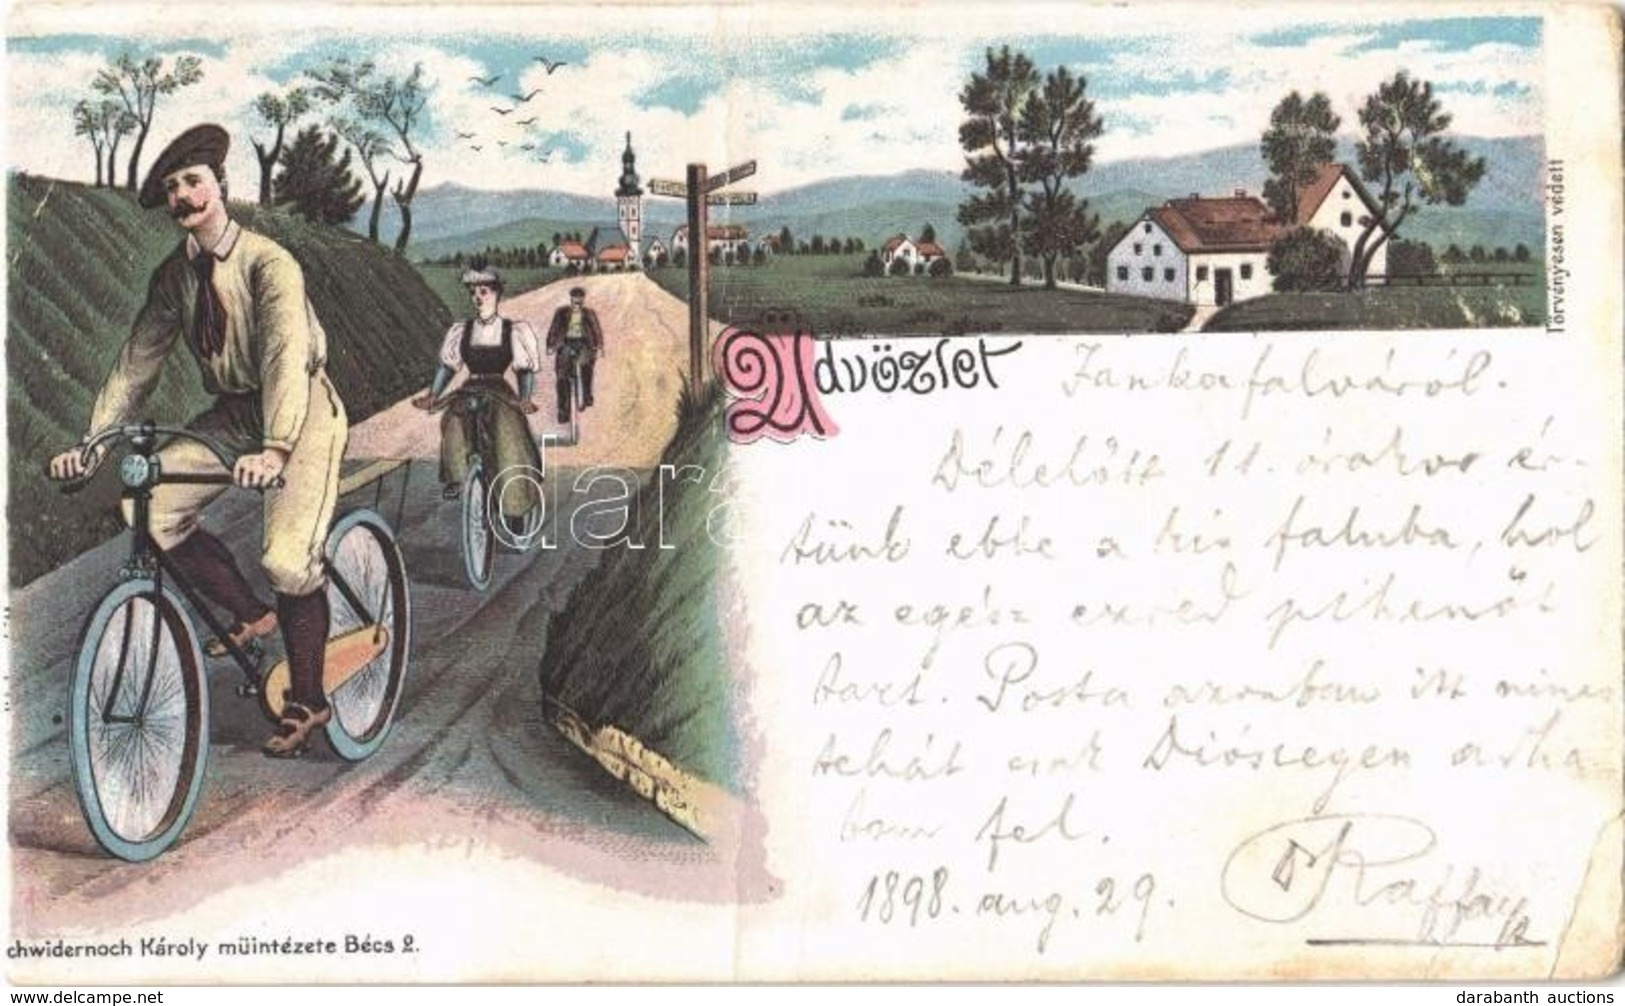 Törvényesen védett
Üdvözlet Jankafalváról.
Délelőtt 11. órakor ér-
tünk ebbe a kis faluba, hol
az egész ezred pihenőt
tart. Posta azonban itt nincs
tehát csak Diószegen adha
tom fel.
1898. aug. 29. Dr Raffay
chwidernoch Károly müintézete Bécs 2.
dara
www.delcampe.net
darabanth auctions